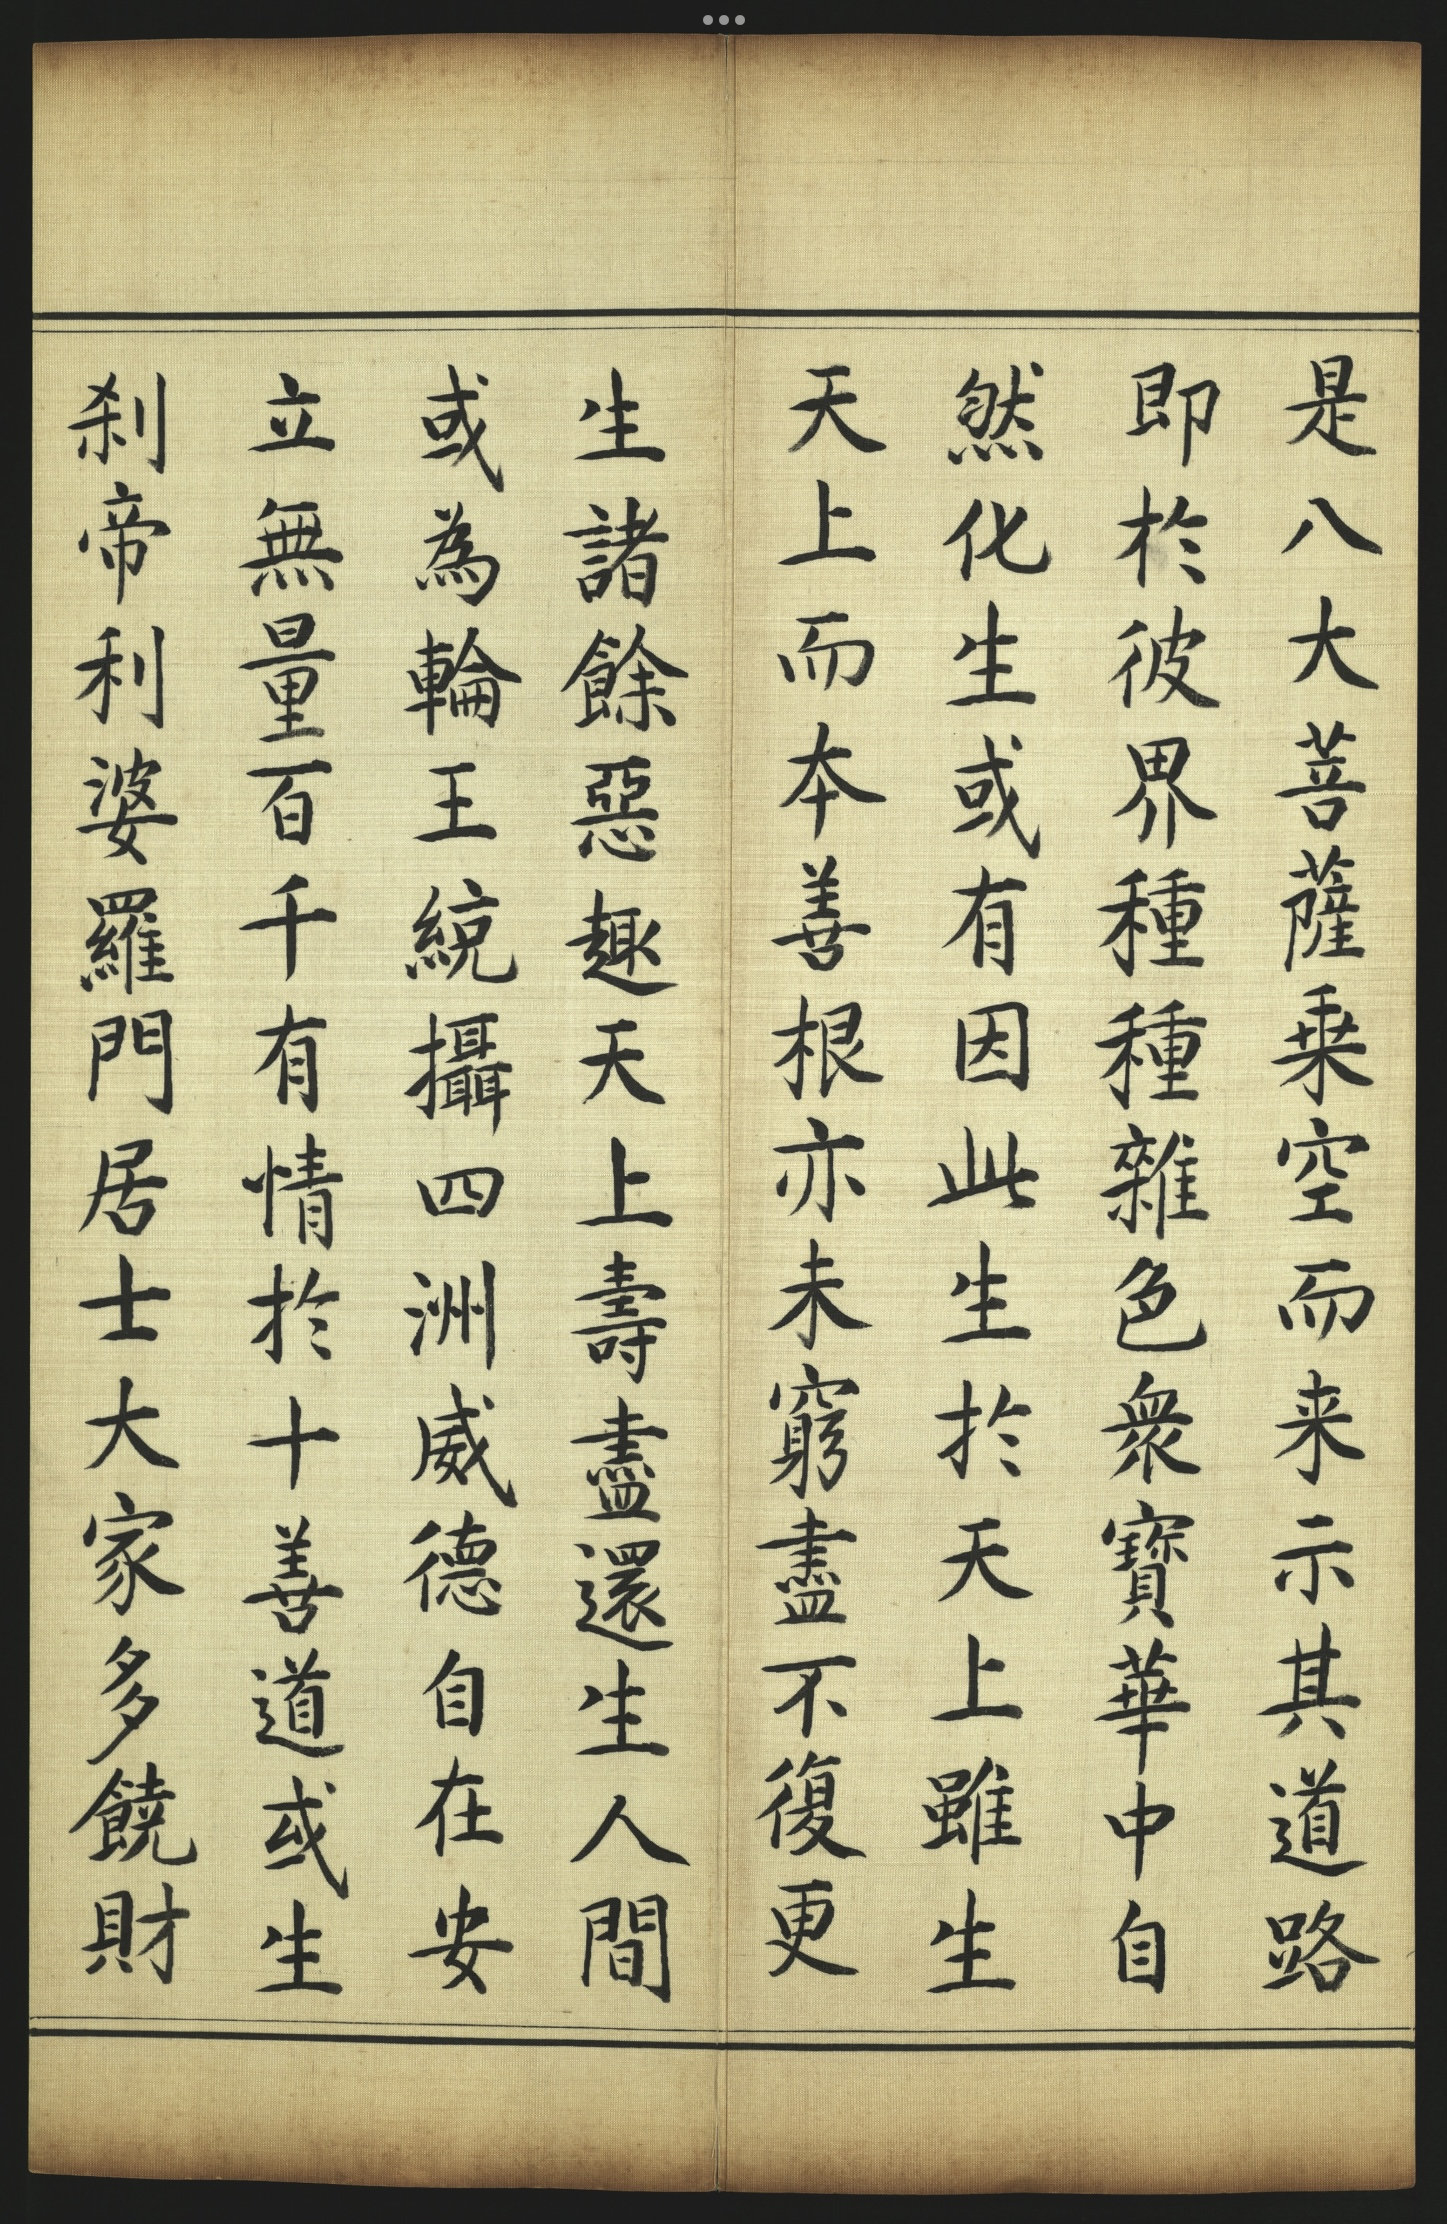 是八大菩薩乗空而来示其道路
即於彼界種種雜色衆寶華中自
然化生或有因此生於天上雖生
天上而本善根亦未窮盡不復更
生諸餘惡趣天上壽盡還生人間
或為輪王統攝四洲威德自在安
立無量百千有情於十善道或生
刹帝利婆羅門居士大家多饒財